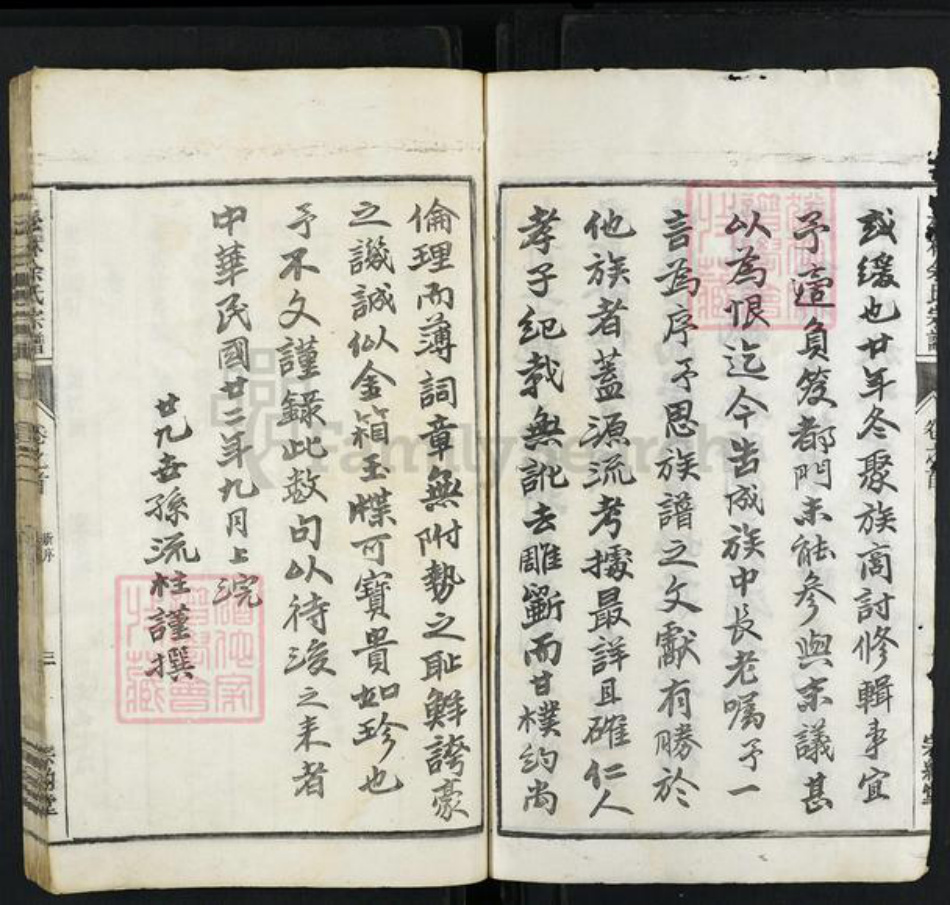 或缓也廿年冬聚族商討修輯事宜
予適負笈都門未能參與末議甚
以為恨迄今告成族中長老囑予一
言為序予思族譜之文獻有勝於
他族者蓋源流考據最詳且確仁人
孝子紀載無訛去雕斵而甘樸約尚
倫理而薄詞章無附勢之恥鮮誇豪
之譏誠似金箱玉牒可寶貴如珍也
予不文謹錄此数句以待後之来者
中華民國廿二年九月上浣
廿九世孫流柱謹撰
余氏宗譜
卷之首
新序
FamilySearch